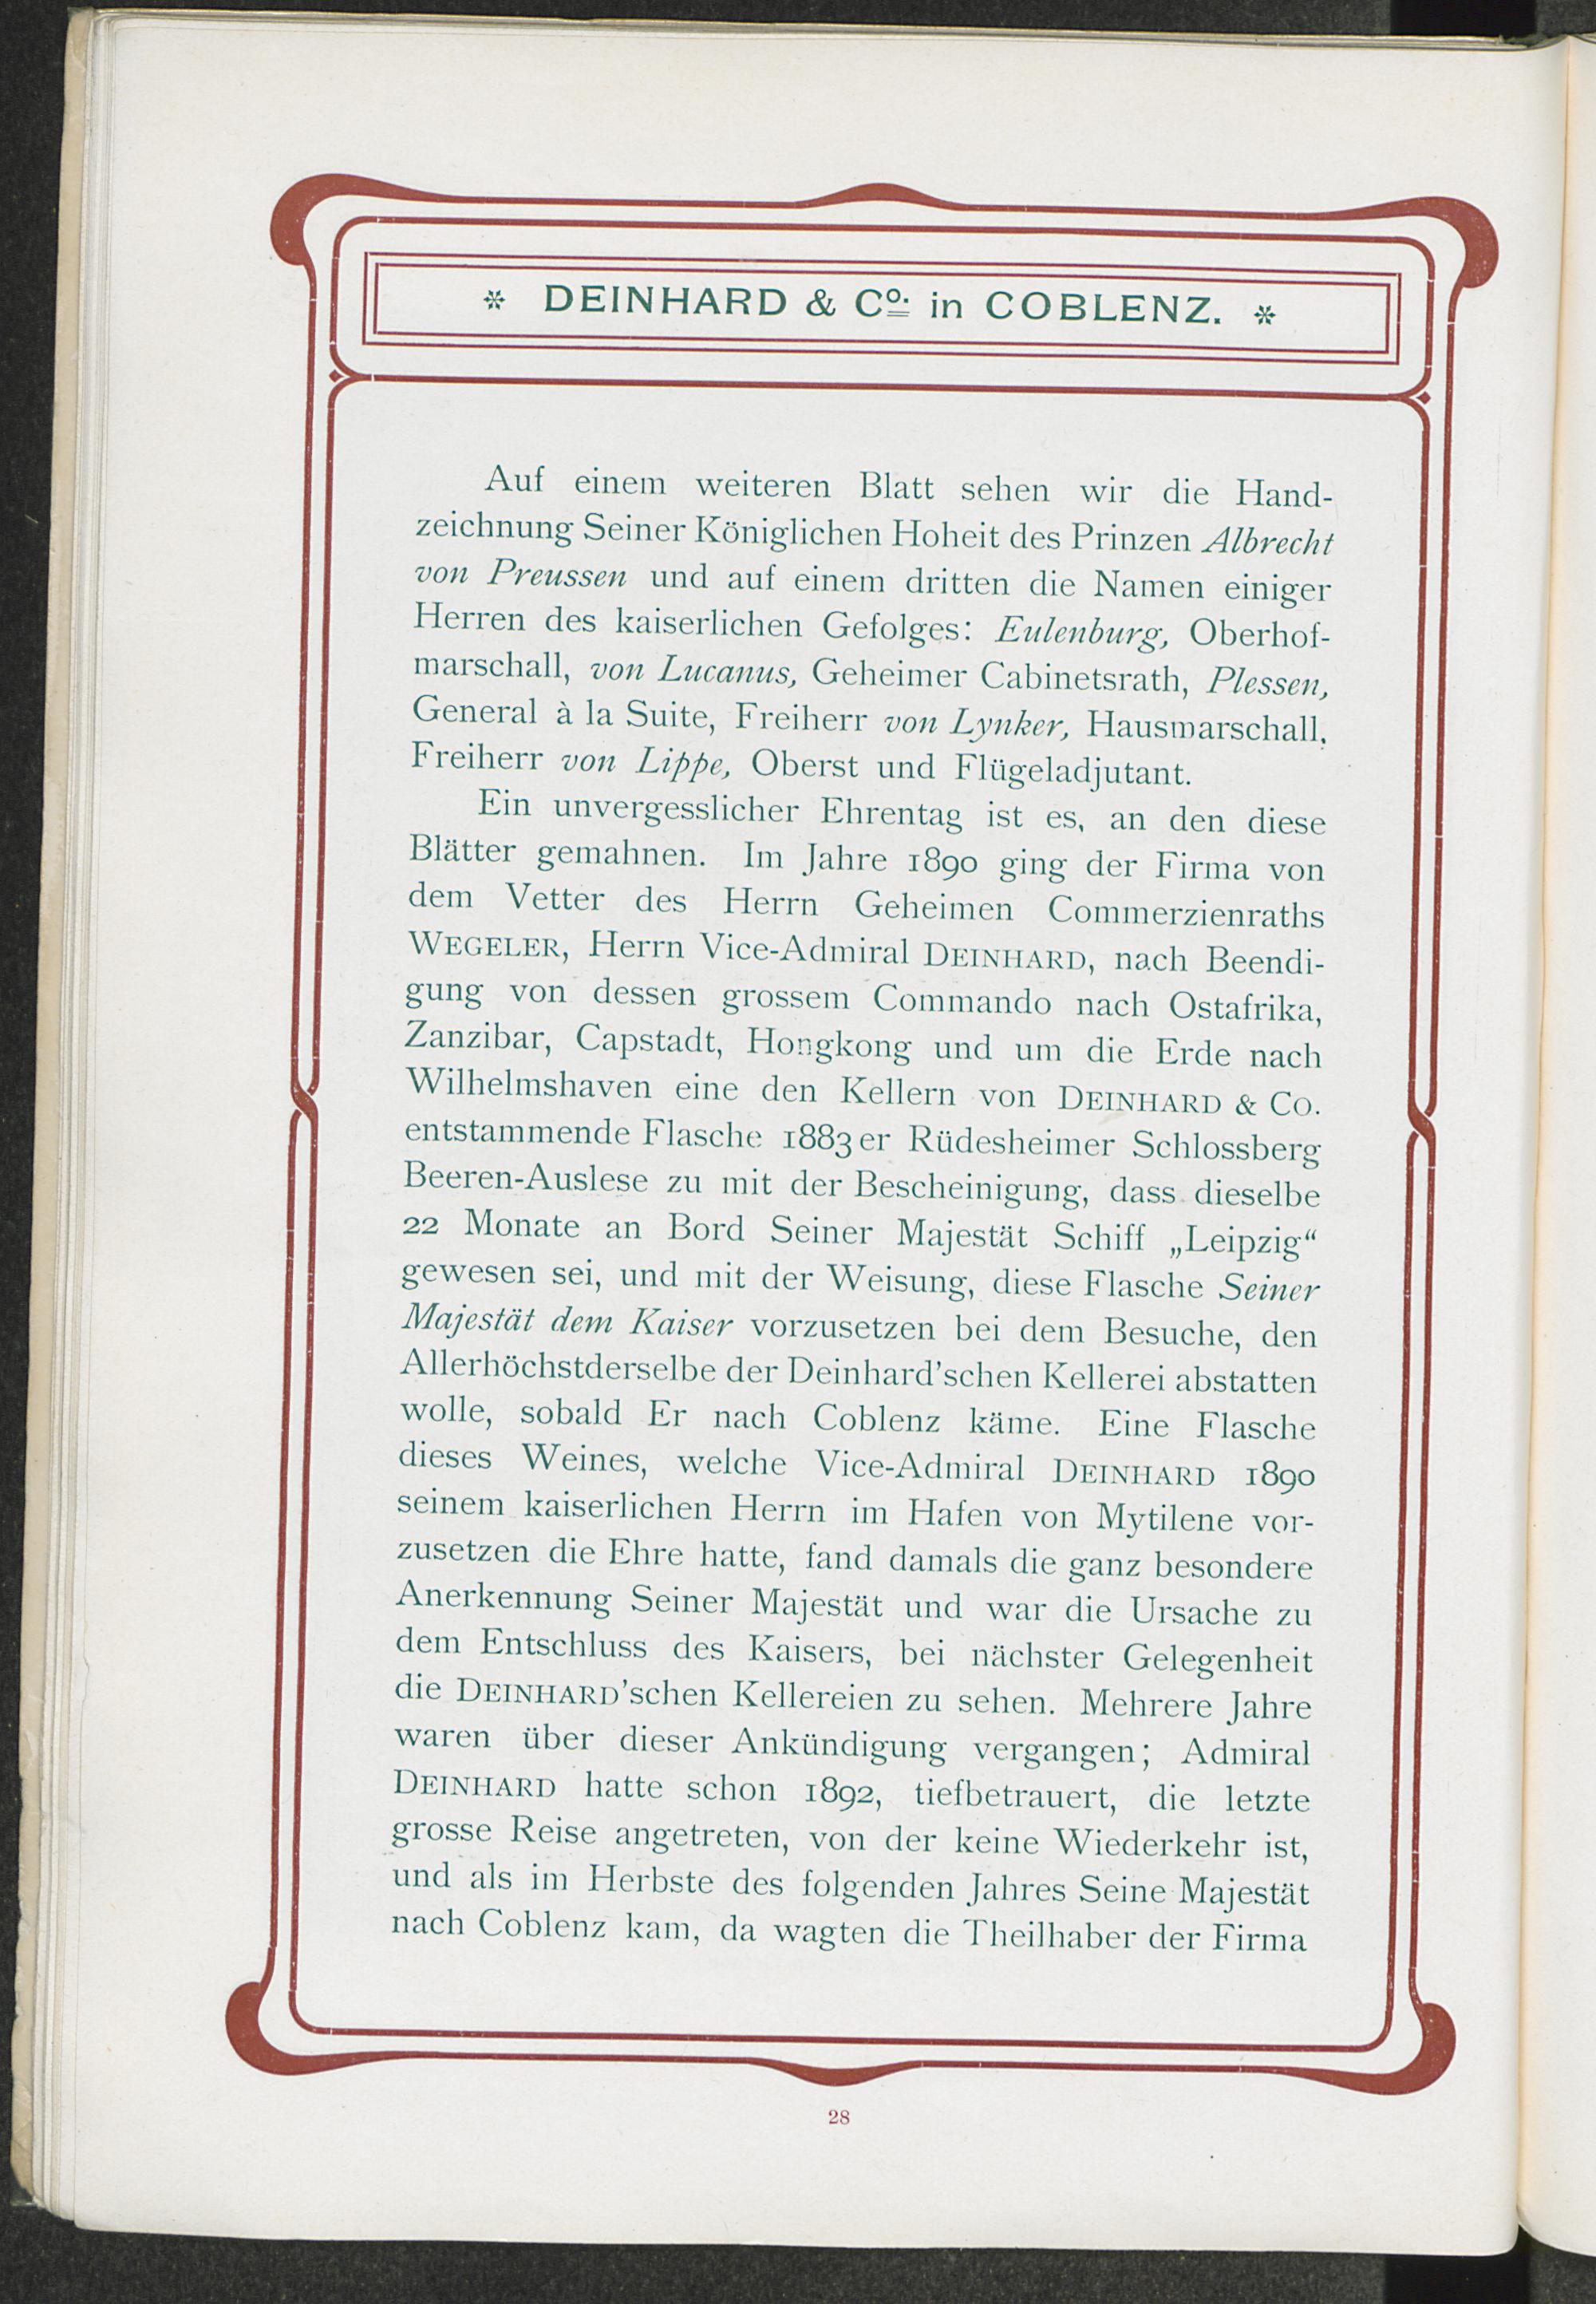 * DEINHARD & Co. in COBLENZ. *
Auf einem weiteren Blatt sehen wir die Hand-
zeichnung Seiner Königlichen Hoheit des Prinzen Albrecht
von Preussen und auf einem dritten die Namen einiger
Herren des kaiserlichen Gefolges: Eulenburg, Oberhof-
marschall, von Lucanus, Geheimer Cabinetsrath, Plessen,
General à la Suite, Freiherr von Lynker, Hausmarschall,
Freiherr von Lippe, Oberst und Flügeladjutant.
Ein unvergesslicher Ehrentag ist es, an den diese
Blätter gemahnen. Im Jahre 1890 ging der Firma von
dem Vetter des Herrn Geheimen Commerzienraths
WEGELER, Herrn Vice-Admiral DEINHARD, nach Beendi-
gung von dessen grossem Commando nach Ostafrika,
Zanzibar, Capstadt, Hongkong und um die Erde nach
Wilhelmshaven eine den Kellern von DEINHARD & Co.
entstammende Flasche 1883er Rüdesheimer Schlossberg
Beeren-Auslese zu mit der Bescheinigung, dass dieselbe
22 Monate an Bord Seiner Majestät Schiff „Leipzig“
gewesen sei, und mit der Weisung, diese Flasche Seiner
Majestät dem Kaiser vorzusetzen bei dem Besuche, den
Allerhöchstderselbe der Deinhard'schen Kellerei abstatten
wolle, sobald Er nach Coblenz käme. Eine Flasche
dieses Weines, welche Vice-Admiral DEINHARD 1890
seinem kaiserlichen Herrn im Hafen von Mytilene vor-
zusetzen die Ehre hatte, fand damals die ganz besondere
Anerkennung Seiner Majestät und war die Ursache zu
dem Entschluss des Kaisers, bei nächster Gelegenheit
die DEINHARD'schen Kellereien zu sehen. Mehrere Jahre
waren über dieser Ankündigung vergangen; Admiral
DEINHARD hatte schon 1892, tiefbetrauert, die letzte
grosse Reise angetreten, von der keine Wiederkehr ist,
und als im Herbste des folgenden Jahres Seine Majestät
nach Coblenz kam, da wagten die Theilhaber der Firma
28